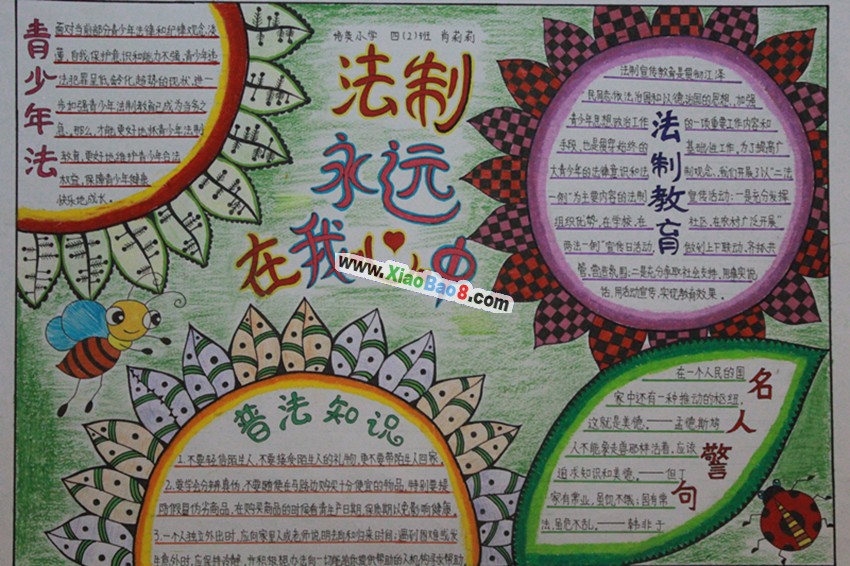 青少年法
面对当前部分青少年法律和纪律观念淡
薄，自我保护意识和能力不强，青少年违
法犯罪呈低龄化趋势的现状，进一
步加强青少年法制教育已成为当务之
急，那么，才能更好地抓青少年法制
教育，更好地维护青少年合法
权益，保障青少年健康
快乐地成长。
四(2)班 肖莉莉
法制
永远
在我心中
www.XiaoBao8.com
法制教育
法制宣传教育是贯彻江泽
民同志依法治国和以德治国的思想，加强
青少年思想政治工作的一项重要工作内容和
手段，也是最容始终的基础性工作，为了提高广
大青少年的法律意识和法制观念，我们开展了以“二法
一例”为主要内容的法制宣传活动：一是充分发挥
组织优势，在学校、在社区、在农村广泛开展“
两法一例”宣传日活动，做到上下联动、齐抓共
管，营造氛围；二是充分争取社会支持，用事实说
话，用活动宣传，实现教育效果。
普法知识
1.不要轻信陌生人，不要接受陌生人的礼物，更不要带陌生人回家。
2.要学会分辨真伪，不要随便在马路边购买十分便宜的物品，特别要提
防假冒伪劣商品，在购买商品的时候看清生产日期、保质期以免影响健康。
3.一个人独立外出时，应向家里人或老师说明去向和归来时间；遇到困难或发
生意外时，应保持冷静，并积极想办法向一切能给你提供帮助的人机构寻求帮助。
名人警句
在一个人民的国
家中还有一种推动的枢纽，
这就是美德。——孟德斯鸠
人不能象走兽那样活着，应该
追求知识和美德。——但丁
家有常业，虽饥不饿；国有常
法，虽危不乱。——韩非子